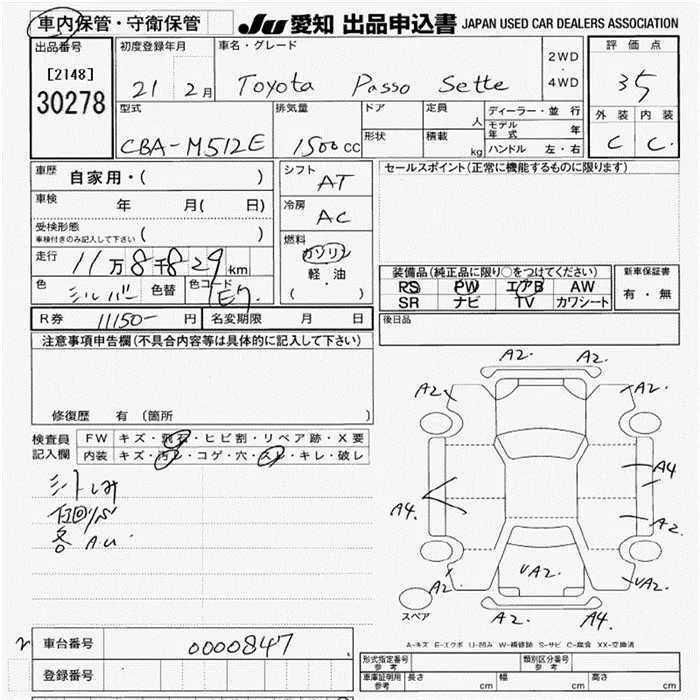 車内保管・守衛保管
JU 愛知 出品申込書 JAPAN USED CAR DEALERS ASSOCIATION
出品番号
[2148]
30278
初度登録年月
21 2月
車名・グレード
Toyota Passo Sette
2WD
・
4WD
評価点
35
外装 内装
C C
型式
CBA-M512E
排気量
1500cc
ドア
形状
定員 人
積載 kg
ディーラー・並行
モデル年式 年
ハンドル 左・右
車歴
自家用・( )
車検 年 月( 日)
受検形態
車検付きのみ記入して下さい ( )
走行 11万8千829km
色 シルバー 色替 色コード
シフト AT
冷房 AC
燃料
ガソリン
軽・油
( )
セールスポイント(正常に機能するものに限ります)
装備品(純正品に限り○をつけてください)
RS PW エアB AW
SR ナビ TV カワシート
新車保証書
有・無
R券 11150- 円 名変期限 月 日
後日品
注意事項申告欄(不具合内容等は具体的に記入して下さい)
修復歴 有(箇所 )
検査員
記入欄
FW キズ・飛石・ヒビ割・リペア跡・X要
内装 キズ・汚レ・コゲ・穴・スレ・キレ・破レ
シートしみ
各 AU
A2. A2.
A2 A2.
A4
A4.
A2.
A2. VA2. VA2.
A2. A4.
スペア
A-キズ E-エクボ U-凹み W-補修跡 S-サビ C-腐食 XX-交換済
車台番号 0000847
登録番号
形式指定番号 参考
類別区分番号 参考
車庫証明用 参考 長さ cm 幅 cm 高さ cm